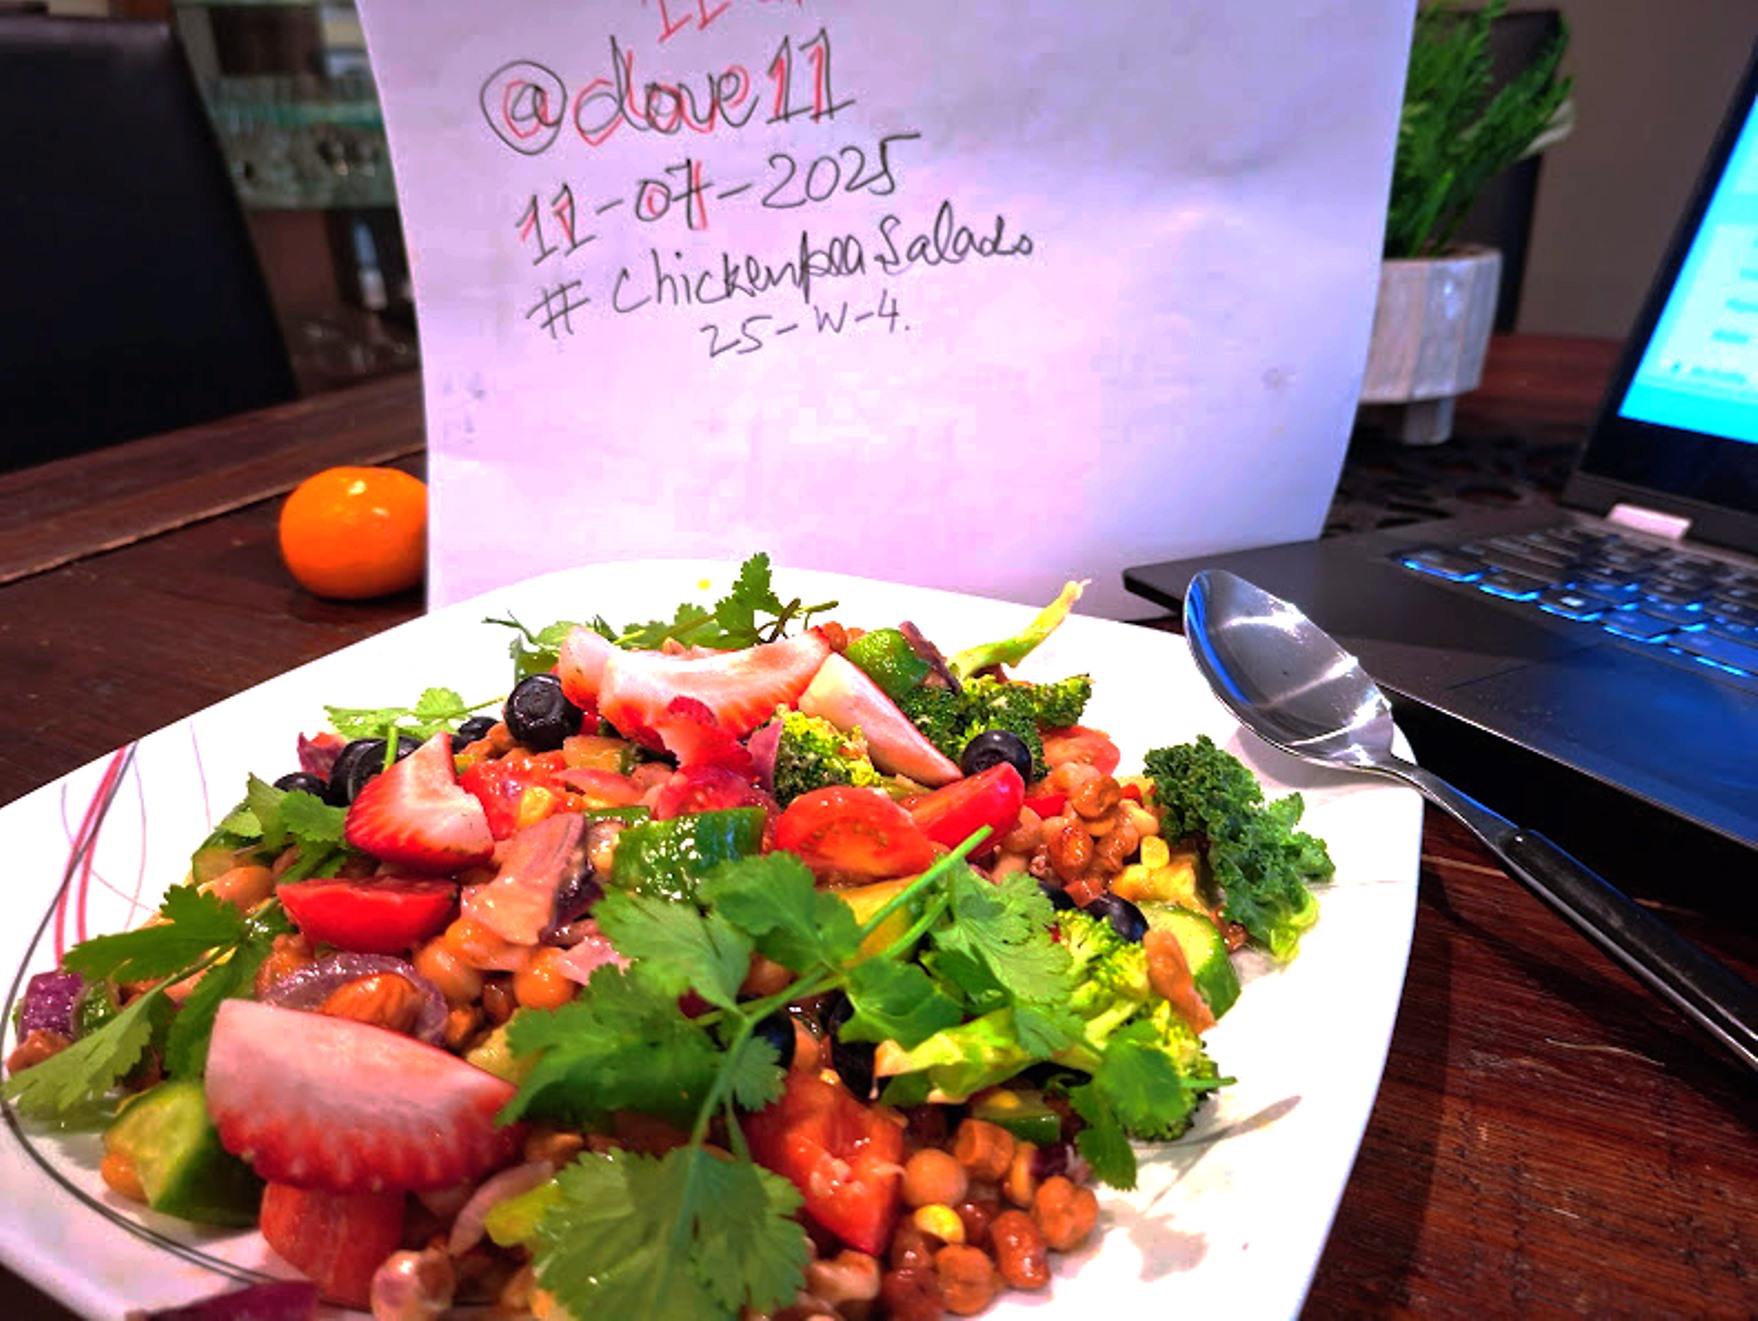 @dove11
11-07-2025
# ChickenpeaSalads
25-W-4.